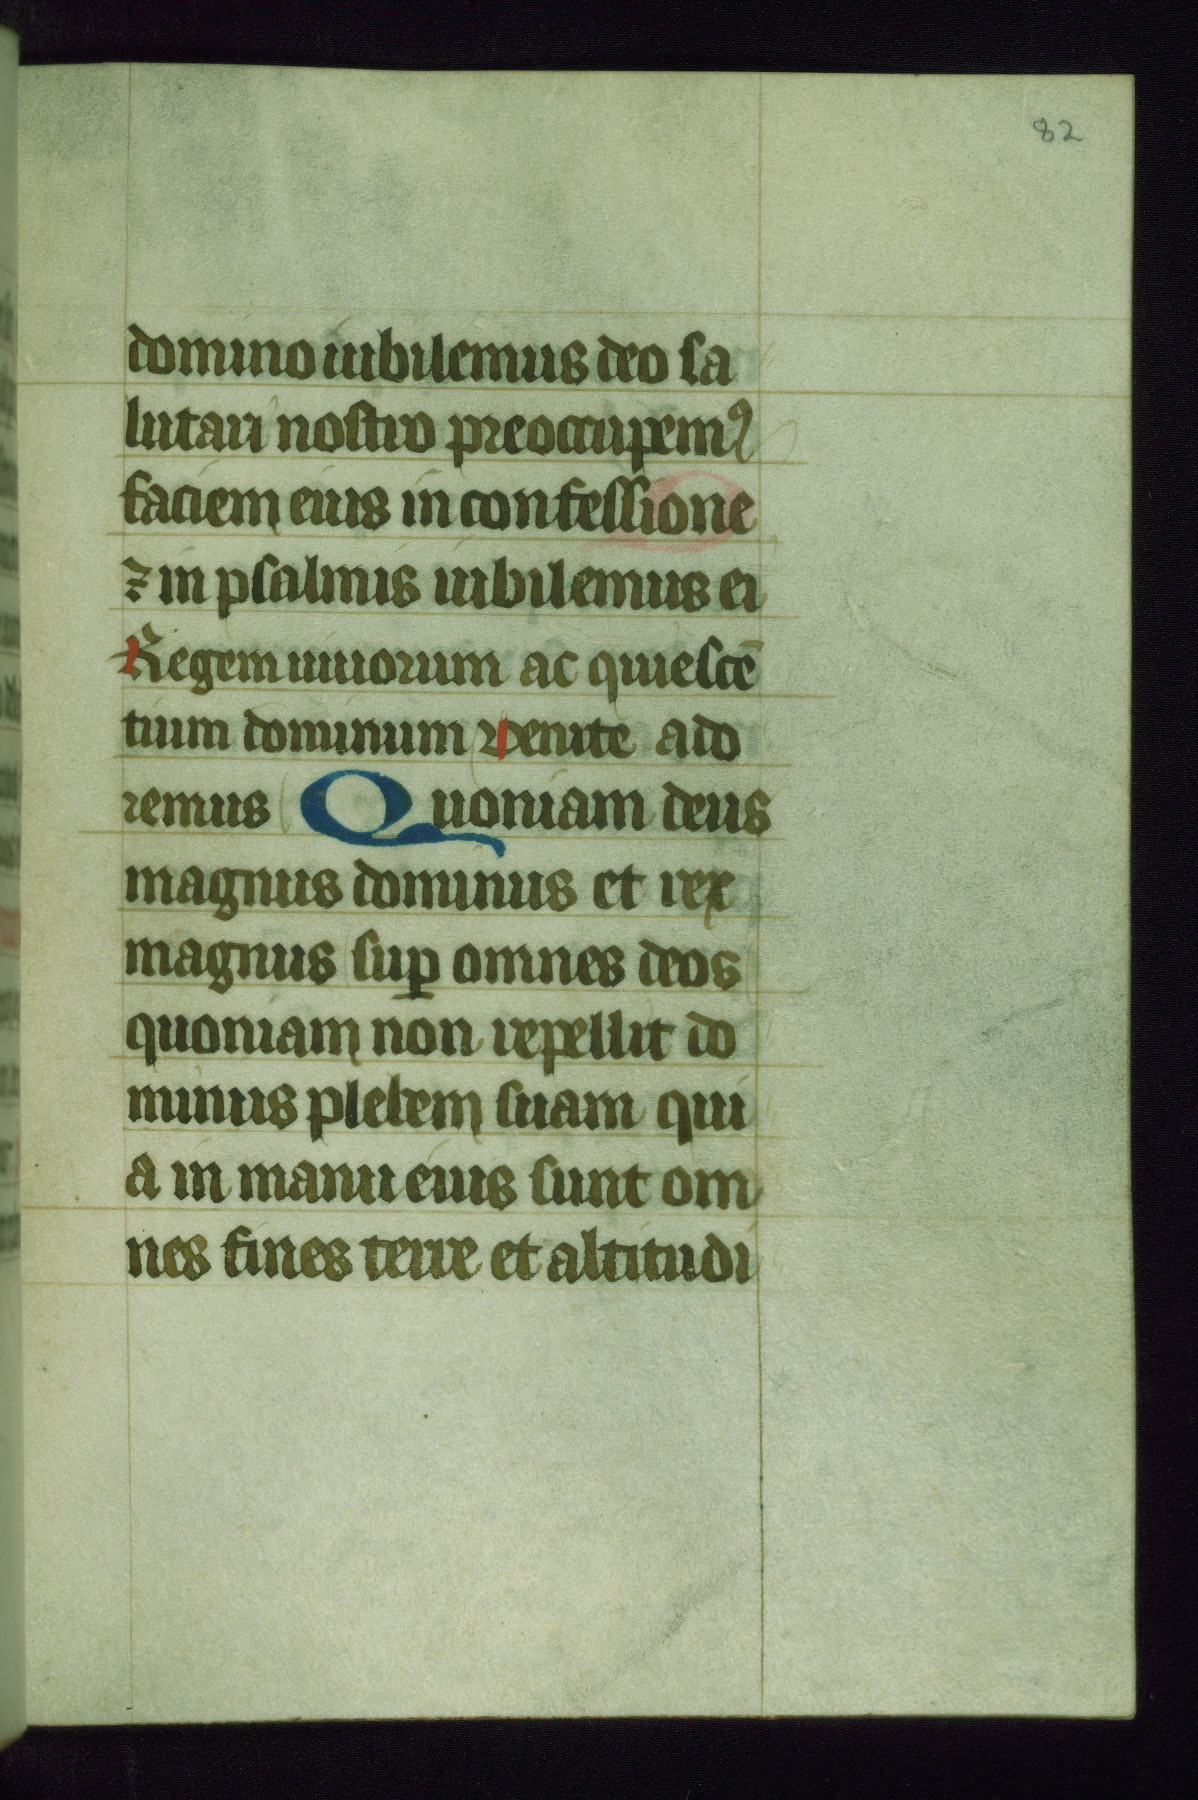 82
domino iubilemus deo sa
lutari nostro preoccupemꝰ
faciem eius in confessione
⁊ in psalmis iubilemus ei
Regem uiuorum ac quiescē
tium dominum venite ado
remus Quoniam deus
magnus dominus et rex
magnus suꝑ omnes deos
quoniam non repellit do
minus plebem suam qui
a in manu eius sunt om
nes fines terre et altitudi